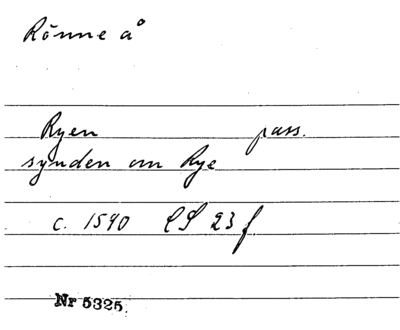 Rönne å
Ryen pass.
synden om Rye
c. 1590 LS 23 f
Nr 5325